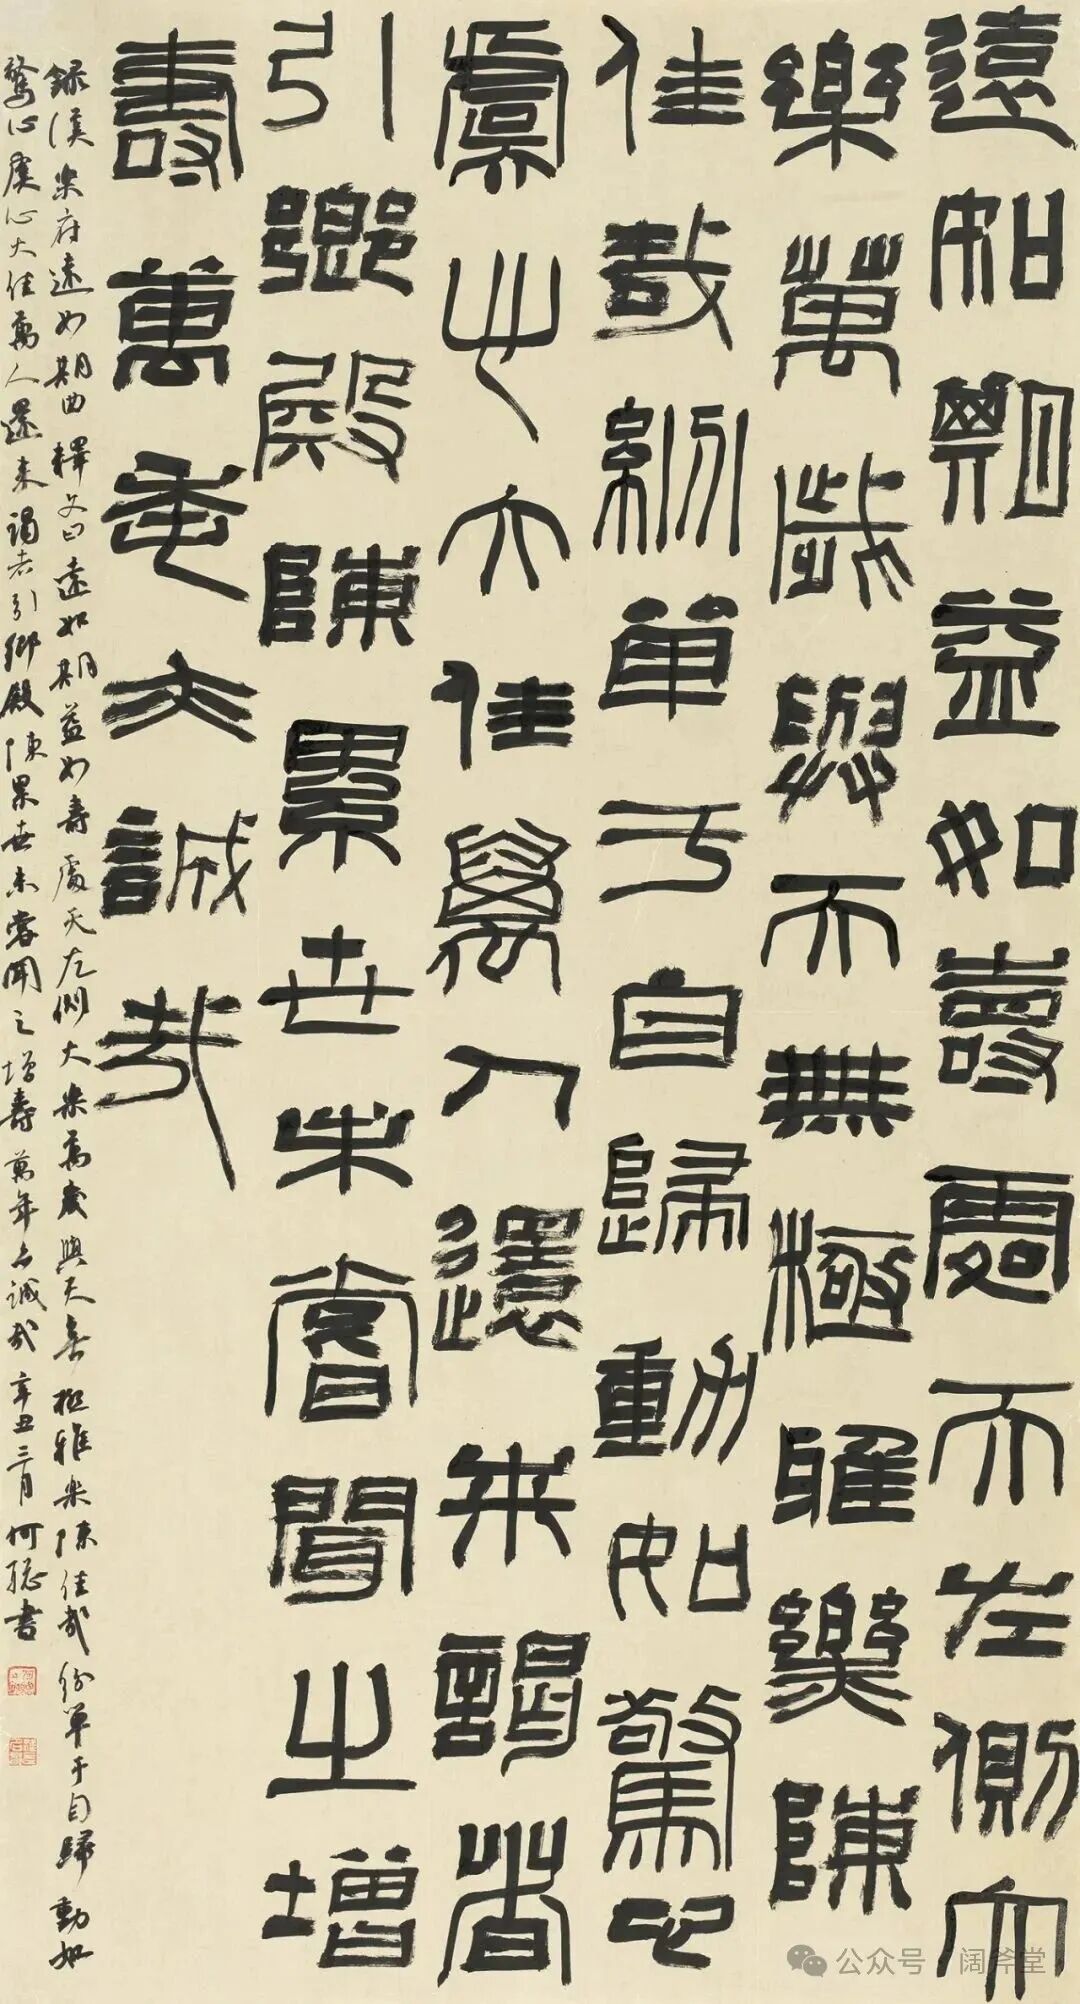 遠如期益如壽處天左側大
樂萬歲與天無極雅樂陳
佳哉紛單于自歸動如驚心
虞心大佳萬人還來謁者
引鄉殿陳累世未嘗聞之增
壽萬年亦誠哉
録漢樂府遠如期曲釋文曰遠如期益如壽處天左側大樂萬歲與天無極雅樂陳佳哉紛單于自歸動如
驚心虞心大佳萬人還來謁者引鄉殿陳累世未嘗聞之增壽萬年亦誠哉辛丑三月何聰書
公众号·阔斧堂